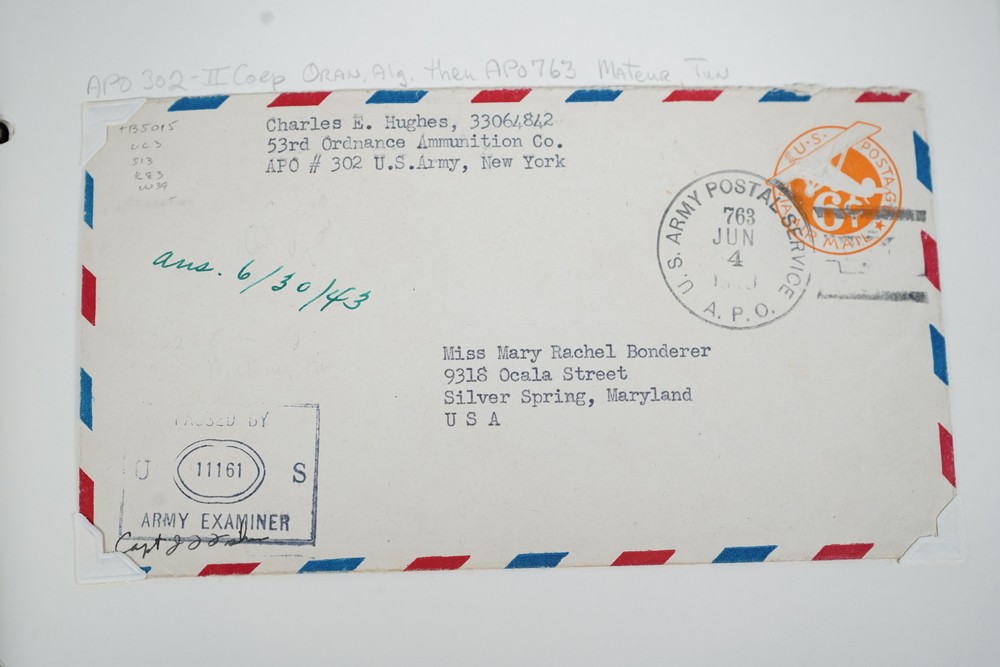 APO 302 - II Corp ORAN, Alg. then APO 763 Mateur, Tun
Charles E. Hughes, 33064842
53rd Ordnance Ammunition Co.
APO # 302 U.S.Army, New York
U.S. POSTAGE
6¢
VIA AIR MAIL
U.S. ARMY POSTAL SERVICE
763
JUN
4
A.P.O.
ans. 6/30/43
Miss Mary Rachel Bonderer
9318 Ocala Street
Silver Spring, Maryland
U S A
PASSED BY
U 11161 S
ARMY EXAMINER
Capt